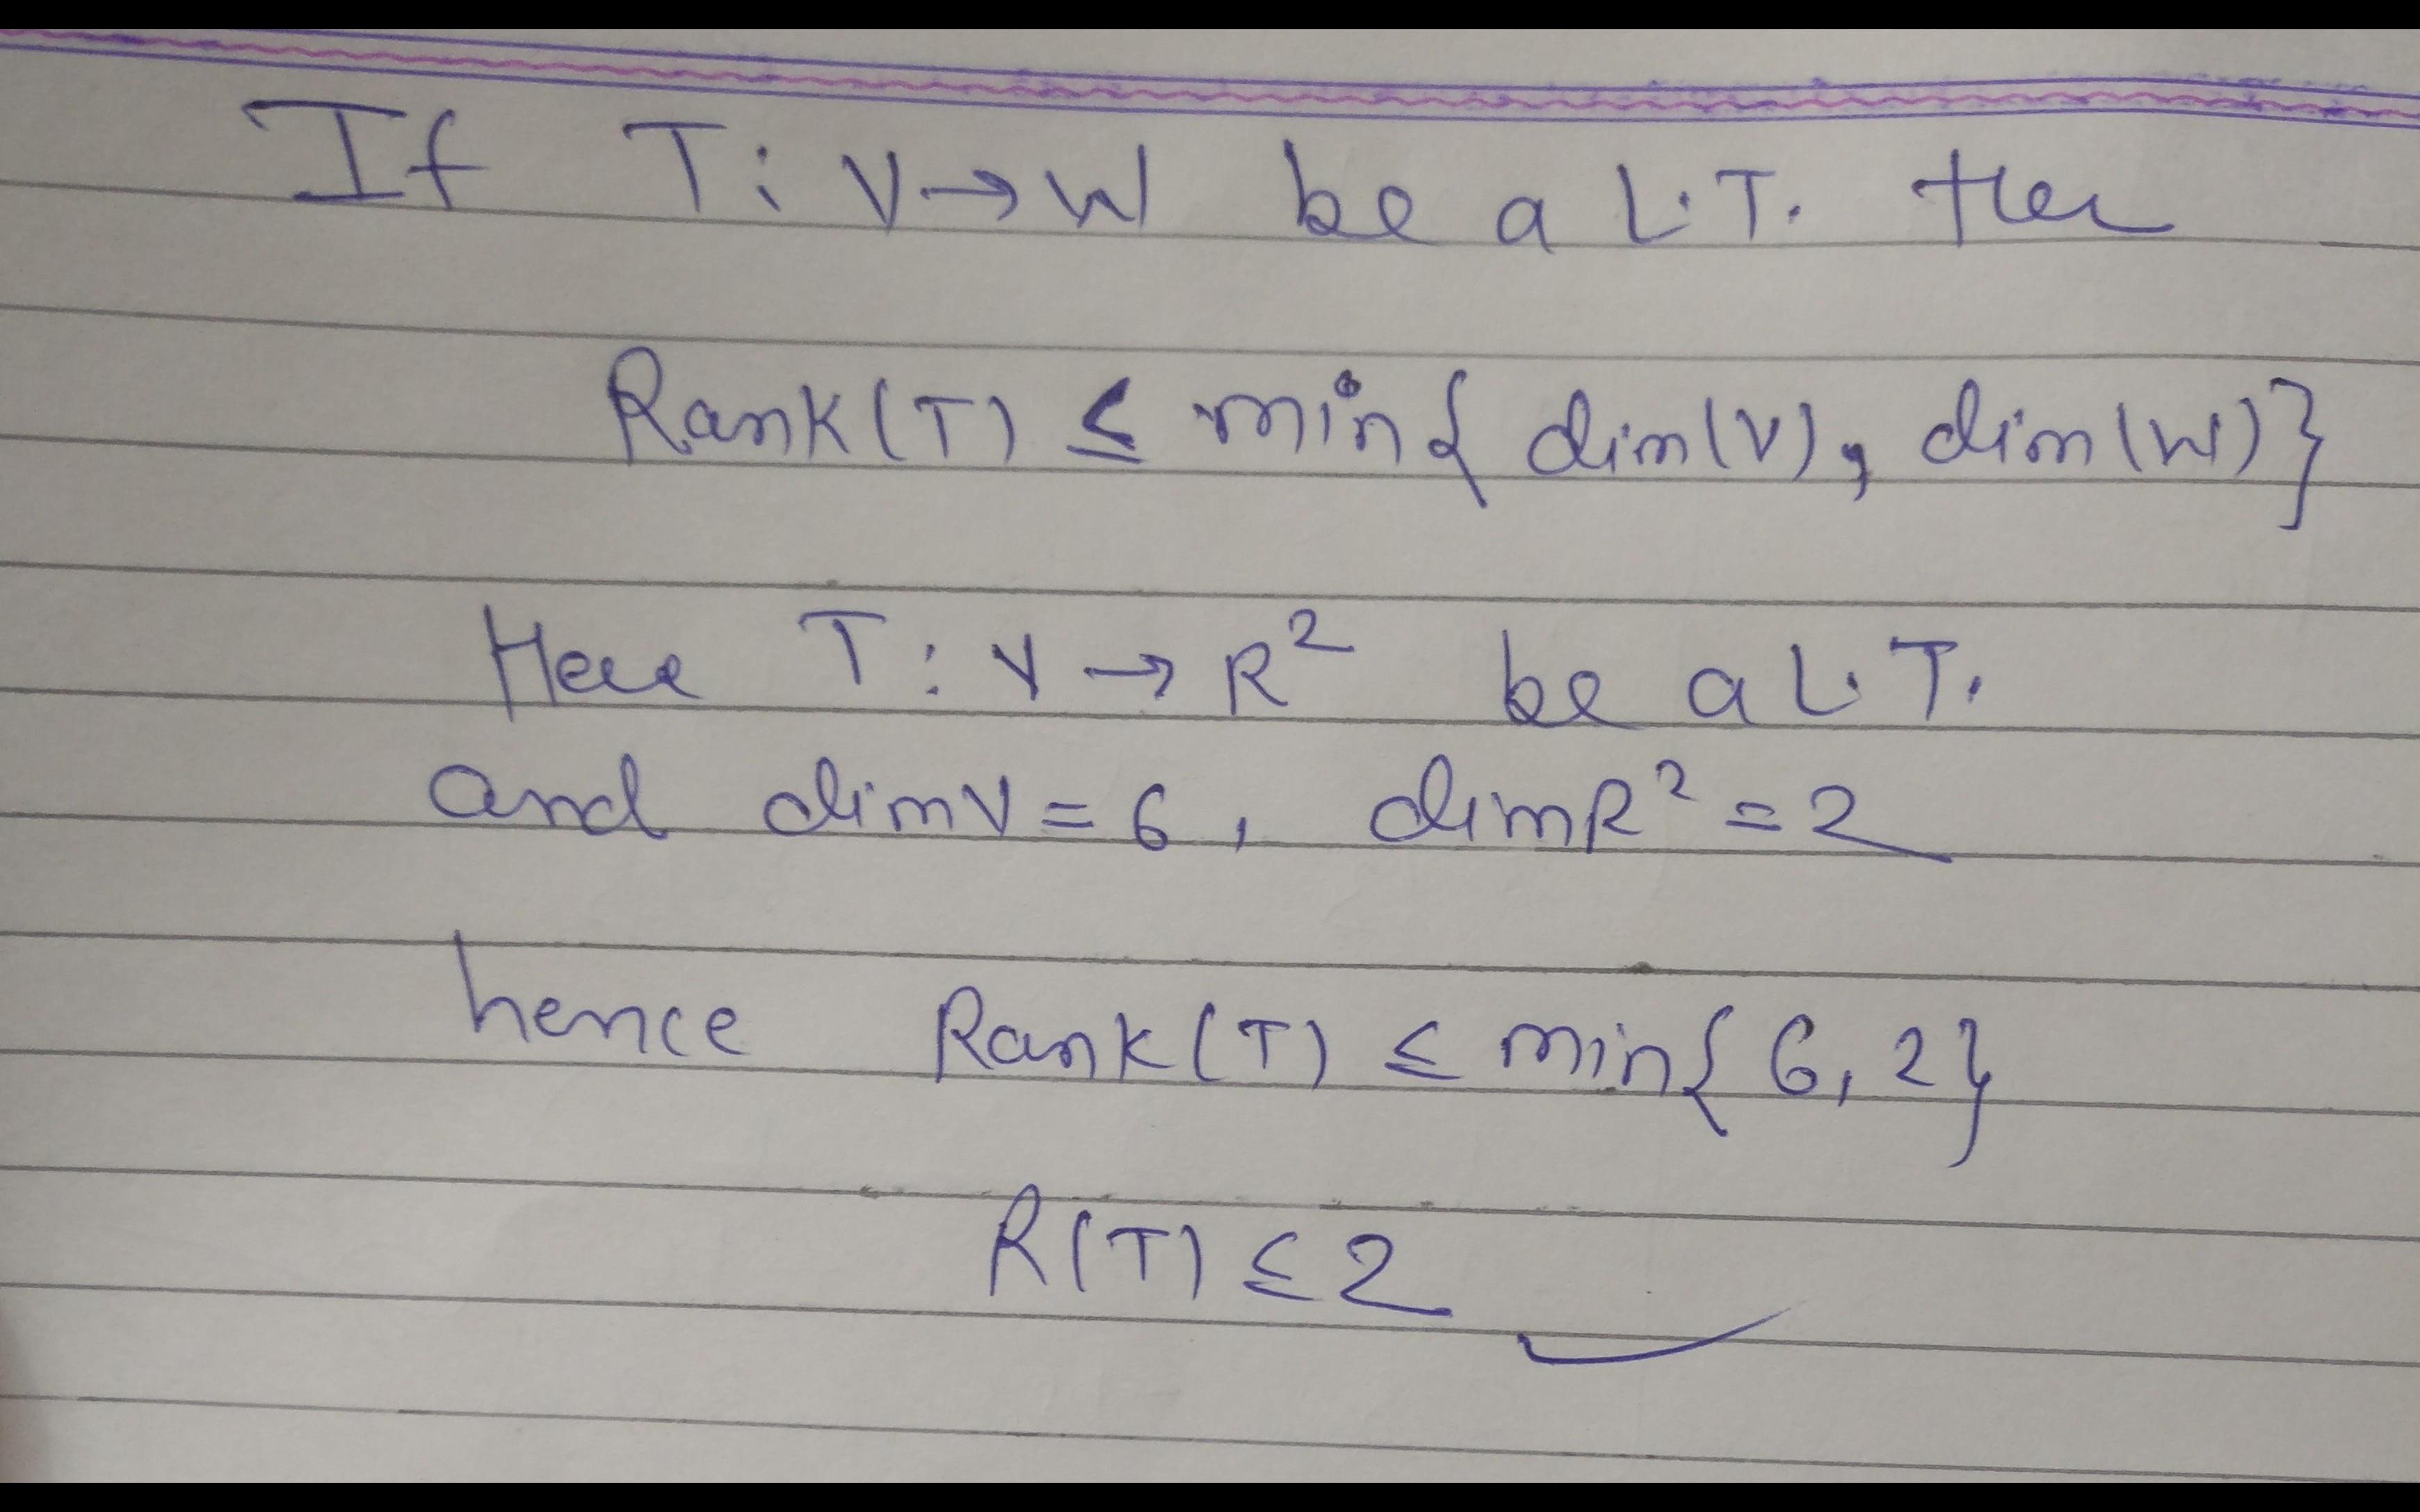 If T: V→W be a L.T. then
Rank(T) ≤ min{ dim(V), dim(W)}
Here T: V → R² be a L.T.
and dimV = 6, dimR² = 2
hence Rank(T) ≤ min{ 6, 2}
R(T) ≤ 2